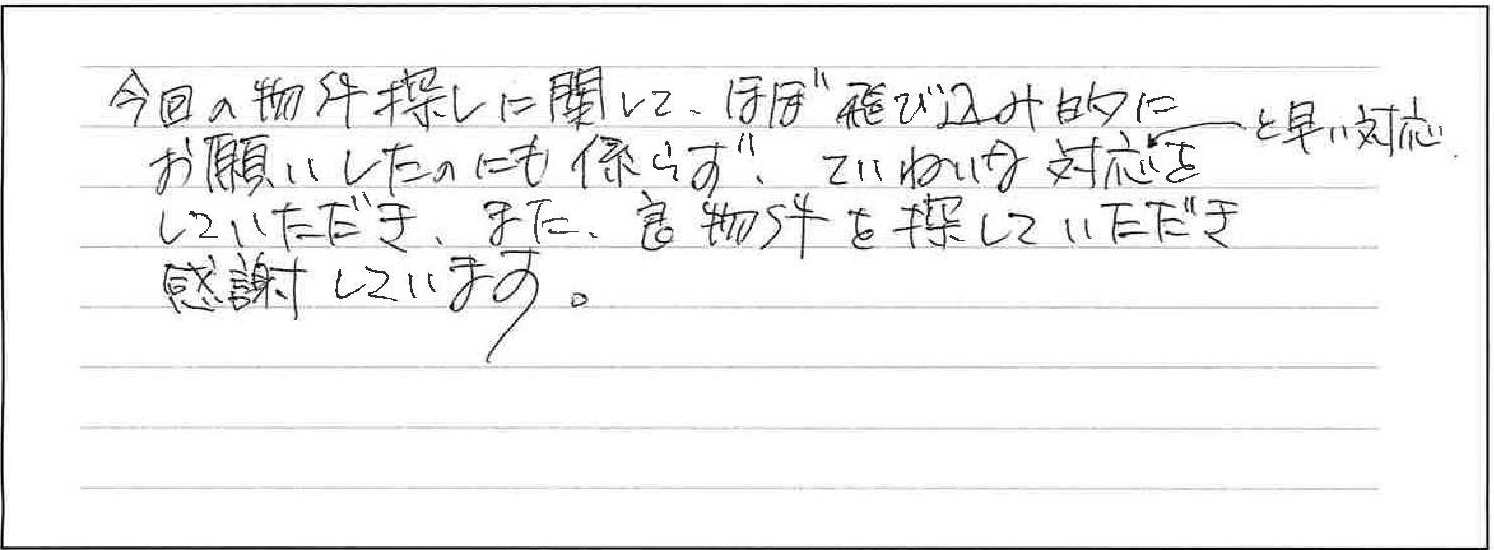 今回の物件探しに関して、ほぼ飛び込み的に
お願いしたのにも係らず、ていねいな対応を
と早い対応
していただき、また、良物件を探していただき
感謝しています。